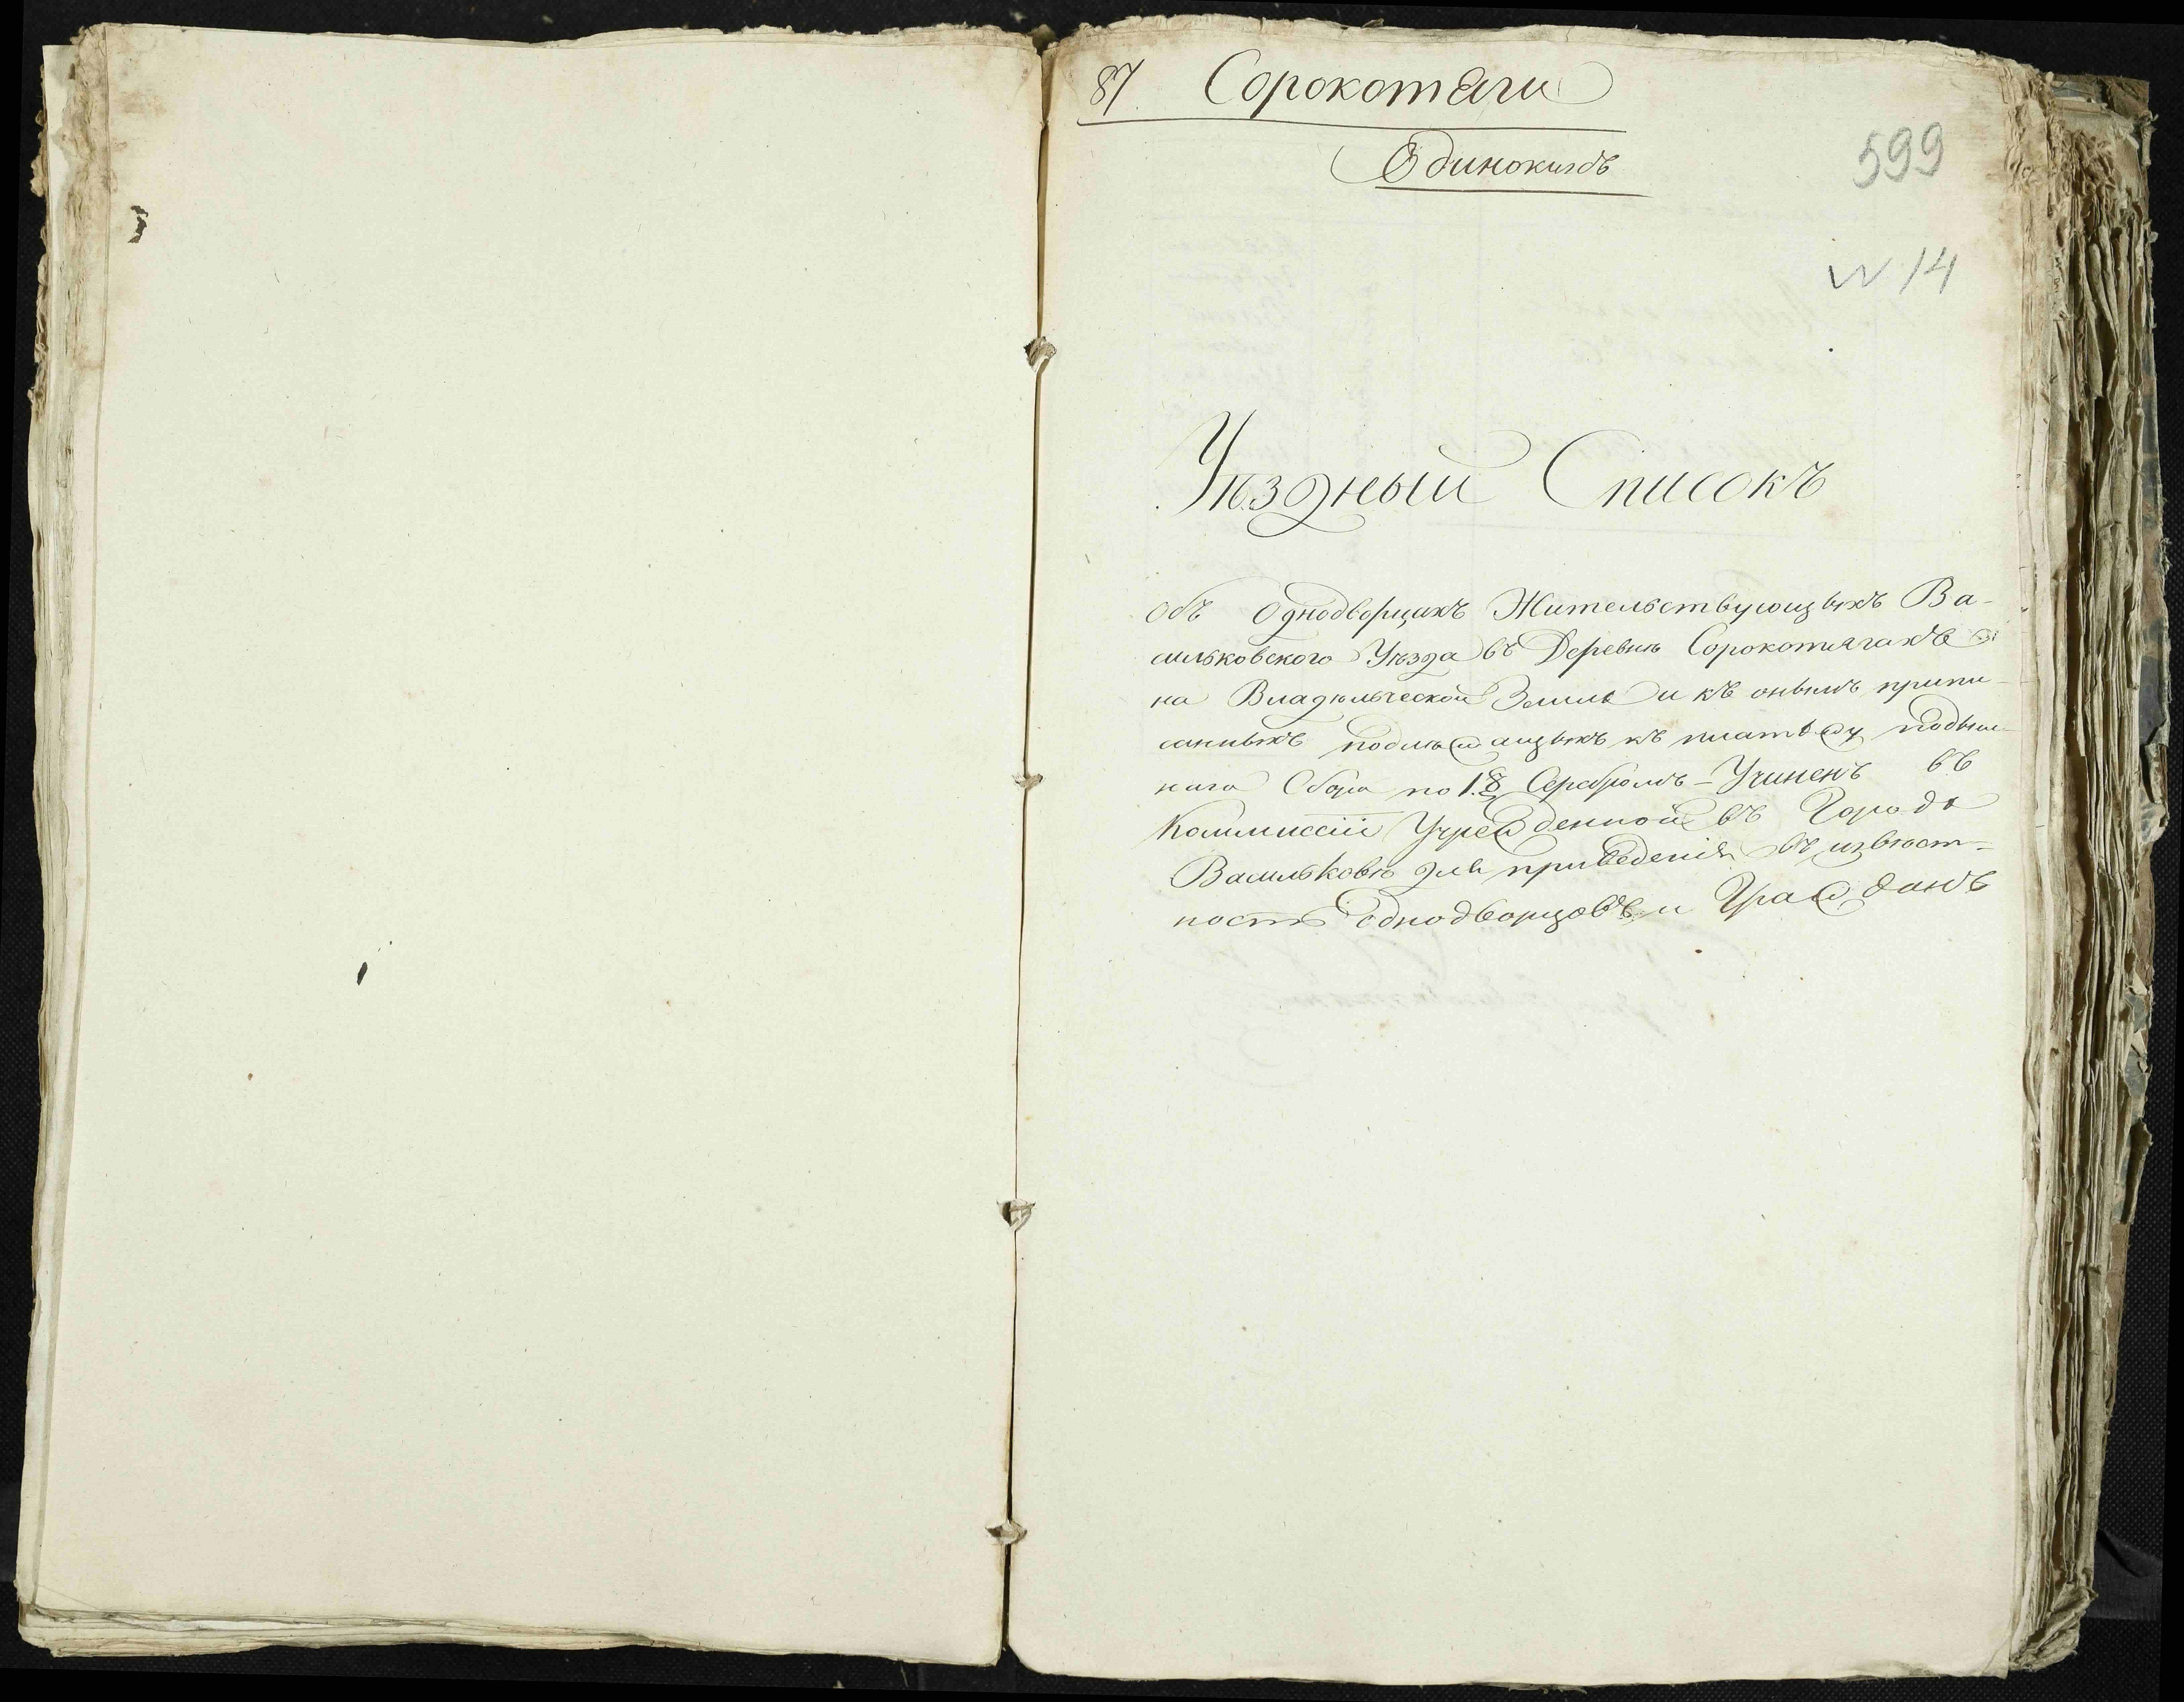 87. Сорокотяги
Одинокихъ
599
N 14
Уѣздный Списокъ
Объ Однодворцахъ Жительствующыхъ Ва-
сильковского Уѣзда въ Деревнѣ Сорокотягахъ
на Владѣльческой Землѣ и къ онымъ припи-
саныхъ подлежащыхъ къ платежу подым-
наго Сбора по 1. Серебромъ - Учиненъ въ
Коммиссіи Учрежденной въ Городѣ
Васильковѣ для приведенія въ извѣст-
ность однодворцовъ и Гражданъ